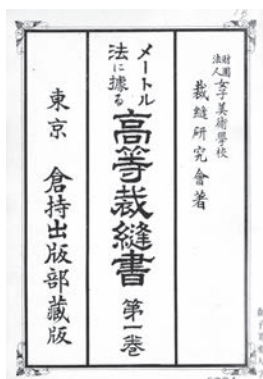 財團
法人
女子美術學校
裁縫研究會著
メートル
法に據る
高等裁縫書 第一巻
東京 倉持出版部藏版